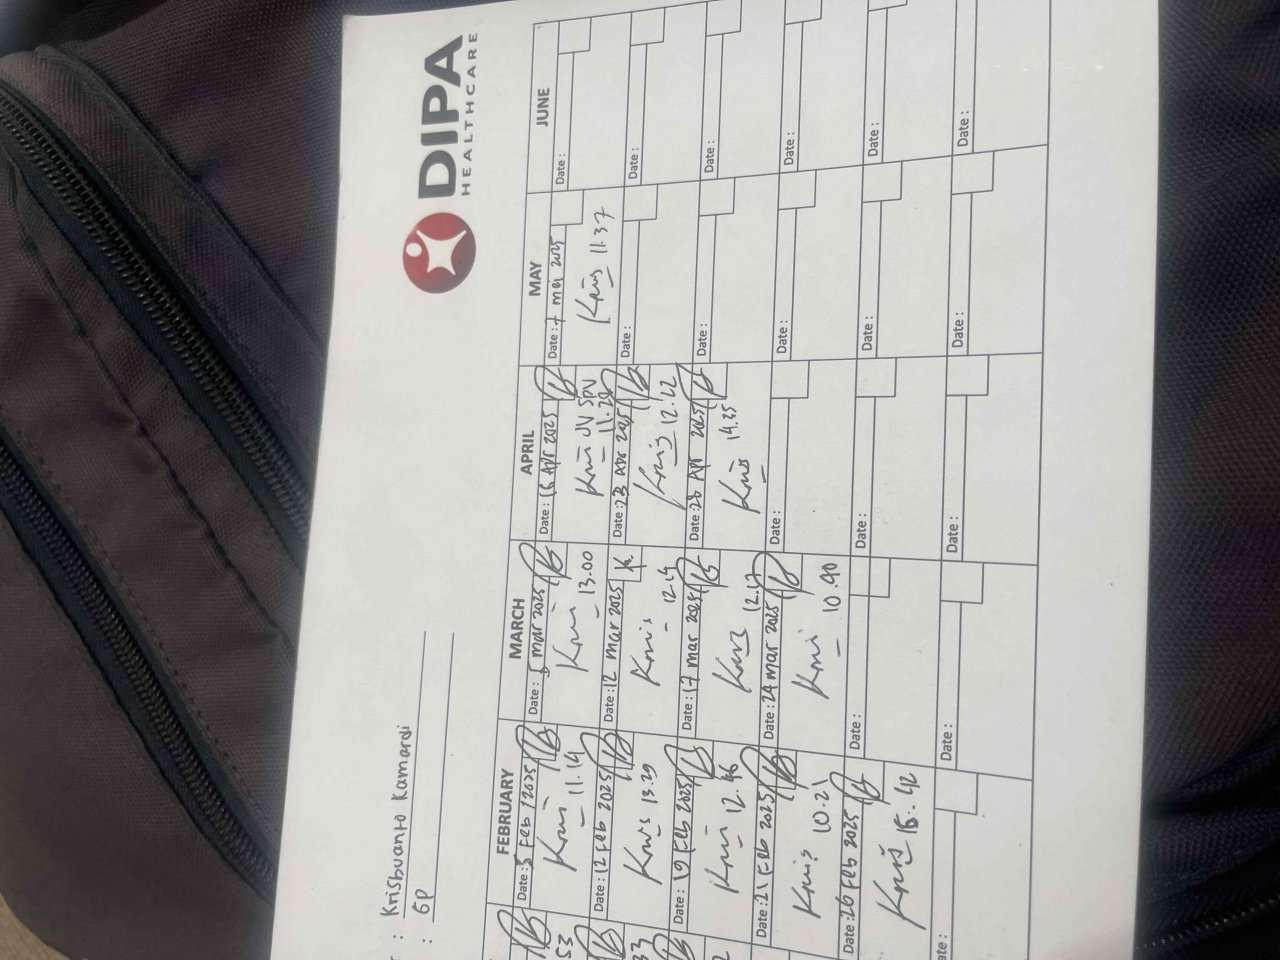 DIPA
HEALTHCARE
: Krisbuanto Kamardi
: GP
FEBRUARY
MARCH
APRIL
MAY
JUNE
Date: 5 Feb 2025
Kris 11.14
Date: 12 Feb 2025
Kris 13.29
Date: 19 Feb 2025
Kris 12.46
Date: 21 Feb 2025
Kris 10.21
Date: 26 Feb 2025
Kris 15.42
Date: 5 mar 2025
Kris 13.00
Date: 12 mar 2025 K
Kris 12.14
Date: 17 mar 2025
Kris 12.17
Date: 24 mar 2025
Kris 10.40
Date:
Date:
Date: 16 Apr 2025
Kris JV SPV
11.28
Date: 23 Apr 2025
Kris 12.22
Date: 28 Apr 2025
Kris 14.25
Date:
Date:
Date:
Date: 7 mei 2025
Kris 11.37
Date:
Date:
Date:
Date:
Date:
Date:
Date:
Date:
Date:
Date:
Date:
53